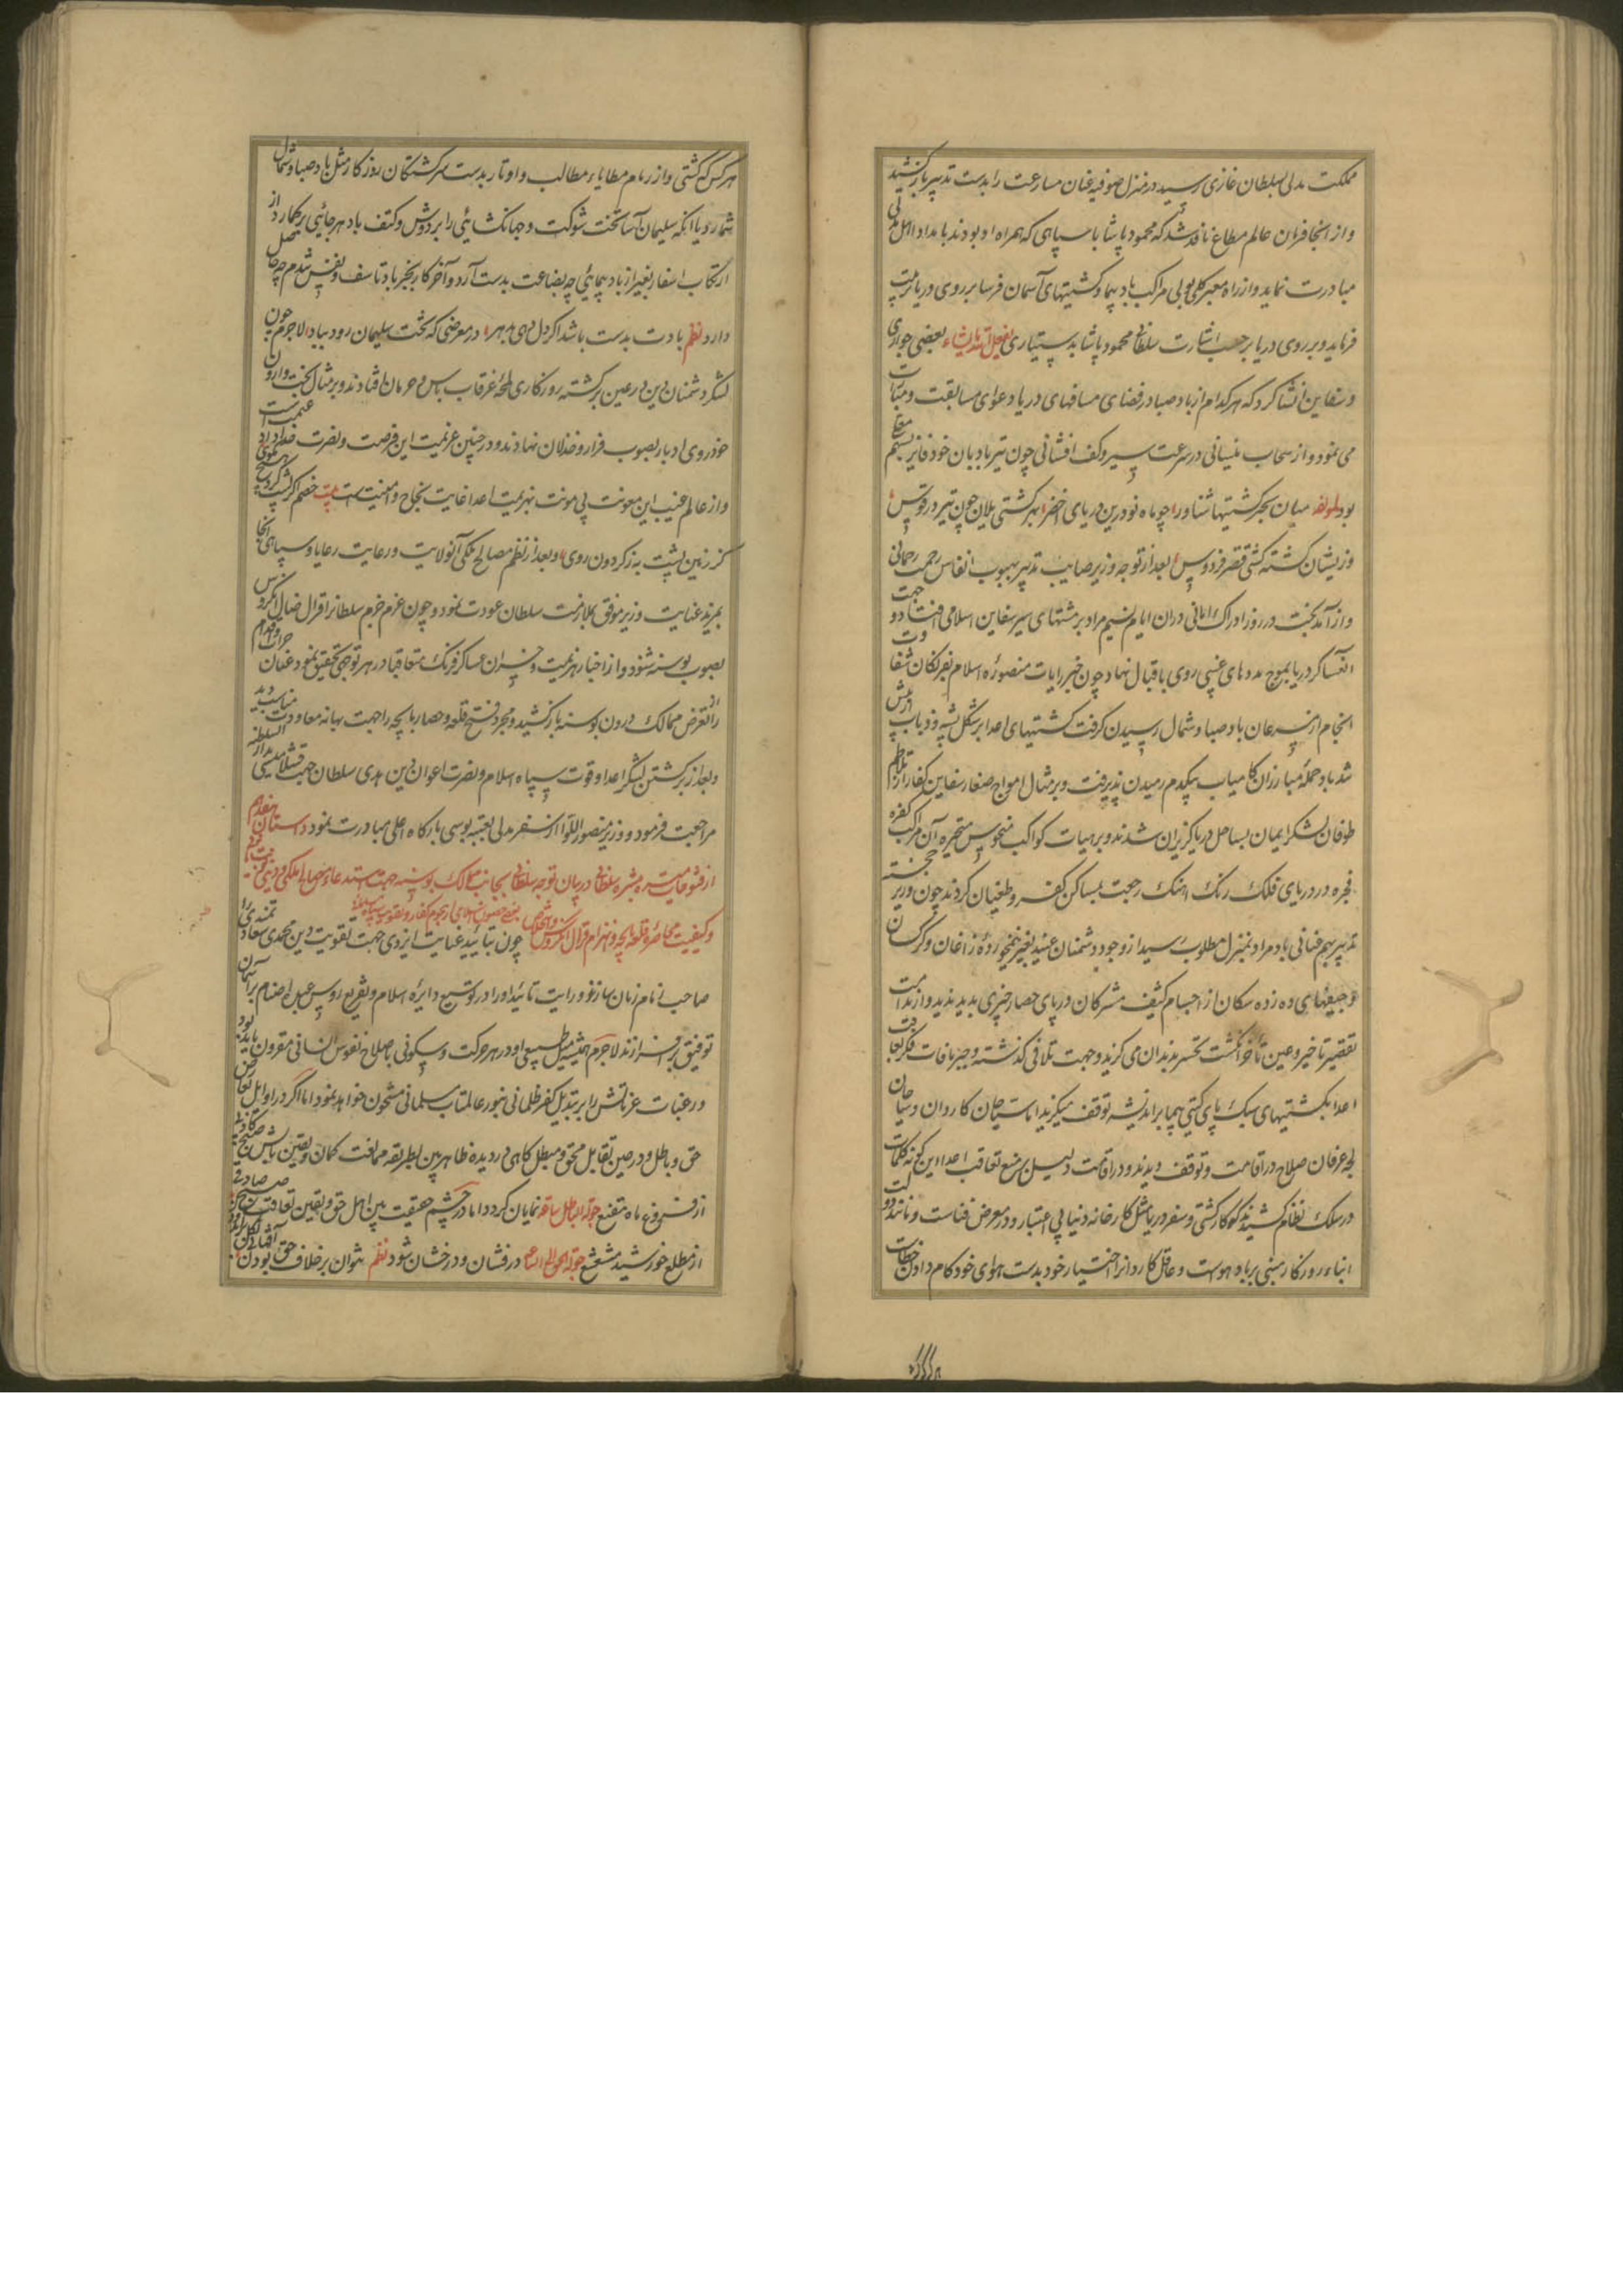 مملکت مدلی بسلطان غازی رسید در منزل صوفیه عنان مسارعت را بدست تدبیر باز کشید
و از آنجا فرمان عالم مطاع نافذ شد که محمود پاشا با سپاهی که همراه او بودند بامداد اهل مدلی
مبادرت نماید و از راه معبر کلی بولی مراکب باد پیما و کشتیهای آسمان فرسا بر روی دریا مرتب
فرماید و بر روی دریا بر حسب اشارت سلطانی محمود پاشا بدستیاری یفعل الله ما یشاء بعضی جواری
و سفاین انشا کرد که هر کدام از باد صبا در فضای مسافهای دریا دعوای مسابقت و
می نمود و از سحاب نیسانی در سرعت سیر و کف افشانی چون تیر بادبان خود فایز بسهم
بود لمولفه میان بحر کشتیها شناور چو ماه نو درین دریای اخضر بهر کشتی یلان چون تیر در قوس
وزیشان کشته کشتی قصر فردوس بعد از توجه وزیر صایب تدبیر بهبوب انفاس رحمت رحمانی
و از آمد بخت در روز ادراک امانی دران ایام نسیم مراد بر مشتهای سیر سفاین اسلامی افتاد و
آن عساکر دریا بموج مددهای غیبی روی باقبال نهاد چون خبر رایات منصوره اسلام بفرنکان شقا
انجام از سرعان باد صبا و شمال رسیدن کرفت کشتیهای اعدا بر شکل پشه و ذباب
شد باد حمله مبارزان کامیاب بیکدم رمیدن پذیرفت و بر مثال امواج صغار سفاین کفار از تلاطم
طوفان لشکر ایمان بساحل دریا کریزان شدند و بر هیات کواکب منحوس متحیره آن مراکب کفره
فجره در دریای فلک رنک آهنک رجعت بمساکن کفر و طغیان کردند چون وزیر خجسته
تدبیر بهم عنانی باد مراد بمنزل مطلوب رسید از وجود دشمنان عنید بغیر نیمخورده زاغان و کرکسان
و جیفهای ده زده سکان از اجسام کثیف مشرکان در پای حصار چیزی پدید ندید و از ندامت
تقصیر تاخیر و عین تاخر انکشت تحسر بدندان می کزید و جهت تلافی کذشته و جبر مافات فکر تعاقب
اعدا بکشتیهای سبک پای کیتی پیما بر اندیشه توقف میکزید اما سیاحان کاردان و سباحان
لجه عرفان صلاح در اقامت و توقف دیدند و در اقامت دلیل بر منع تعاقب اعدا این کونه کلمات
در سلک نظام کشیدند که کار کشتی و سفر دریا مثل کارخانه دنیا بی اعتبار و در معرض فناست و مانند
ابناء روزکار مبنی بر باد هواست و عاقل کاردانرا اختیار خود بدست هوای خود کام دادن خطاست
هر کس که کشتی و از زمام مطایاء مطالب و اوتار بدست سرکشتکان روزکار مثل باد صبا و شمال
شمارد یا آنکه سلیمان آسا تخت شوکت و جهانکشائی را بر دوش و کتف باد هر جائی بر کمارد از
ارتکاب اسفار بغیر از باد پیمایی چه بضاعت بدست آرد و آخر کار بجز باد تاسف و نفس ندم چه حاصل
دارد نظم بادت بدست باشد اکر دل نهی بهر در معرضی که تخت سلیمان رود بباد لاجرم چون
لشکر دشمنان بی دین رعین برکشته روزکاری بلجه غرقاب یاس و حرمان افتادند و بر مثال بخت وارون
خود روی ادبار بصوب فرار و خذلان نهادند و در چنین عزیمت این فرصت و نصرت خداداد
و از عالم غیب این معونت بی مونت بهزیمت اعدا غایت نجاح و امنیت است بیت خصم اکر پشت
کز زمین پشت به ز کردون روی و بعد از نظم مصالح ملکی آن ولایت و رعایت رعایا و سپاهی آنجا
بمزید عنایت وزیر موفق بملازمت سلطان عودت نمود و چون عزم خرم سلطانرا قرال ضلال انکروس
بصوب بوسنه شنود و از اخبار هزیمت و خسران عساکر فرنک متعاقبا در هر توجهی تحقیق نمود عنان
را از تعرض ممالک درون بوسنه باز کشید و مجرد فتح قلعه و حصار یایچه را جهت بهانه معاودت مناسب دید
و بعد از برکشتن لشکر اعدا و قوت سپاه اسلام و نصرت اعوان دین هدی سلطان جهت قشلامیشی
مراجعت فرمود و وزیر منصور اللوا از سفر مدلی بعتبه بوسی بارکاه اعلی مبادرت نمود داستان هفدهم
از فتوحات میسره مبشره سلطانی در بیان توجه سلطانی بجانب ممالک بوسنه
و کیفیت محاصره قلعه یایچه و انهزام قرال انکروس چون بتایید عنایت ایزدی جهت تقویت دین محمدی سعادتمندی را
صاحب زمام زمان سازند و رایت تائید او را در توسیع دایره اسلام و تقریع روس عبده اصنام بر آسمان
توفیق برافرازند لاجرم همیشه میل طبیعی او در هر حرکت و سکونی باصلاح نفوس انسانی مقرون باید بود
و رغبات عزماتش را بر تبدیل کفر ظلمانی بنور عالمتاب مسلمانی مشحون خواهد نمود اما اکر در اوایل تعارض
حق و باطل و در حین تقابل محق و مبطل کاهی در دیده ظاهر بین بطریقه ممانعت کمان و یقین تابش صبح کاذب
از فروغ ماه مقنع جولة الباطل ساعة نمایان کردد اما در چشم حقیقت بین اهل حق و یقین تعاقب صبح صادق
از مطلع خورشید مشعشع جولة الحق الی الساعة درفشان و درخشان شود نظم نتوان بر خلاف حق بودن